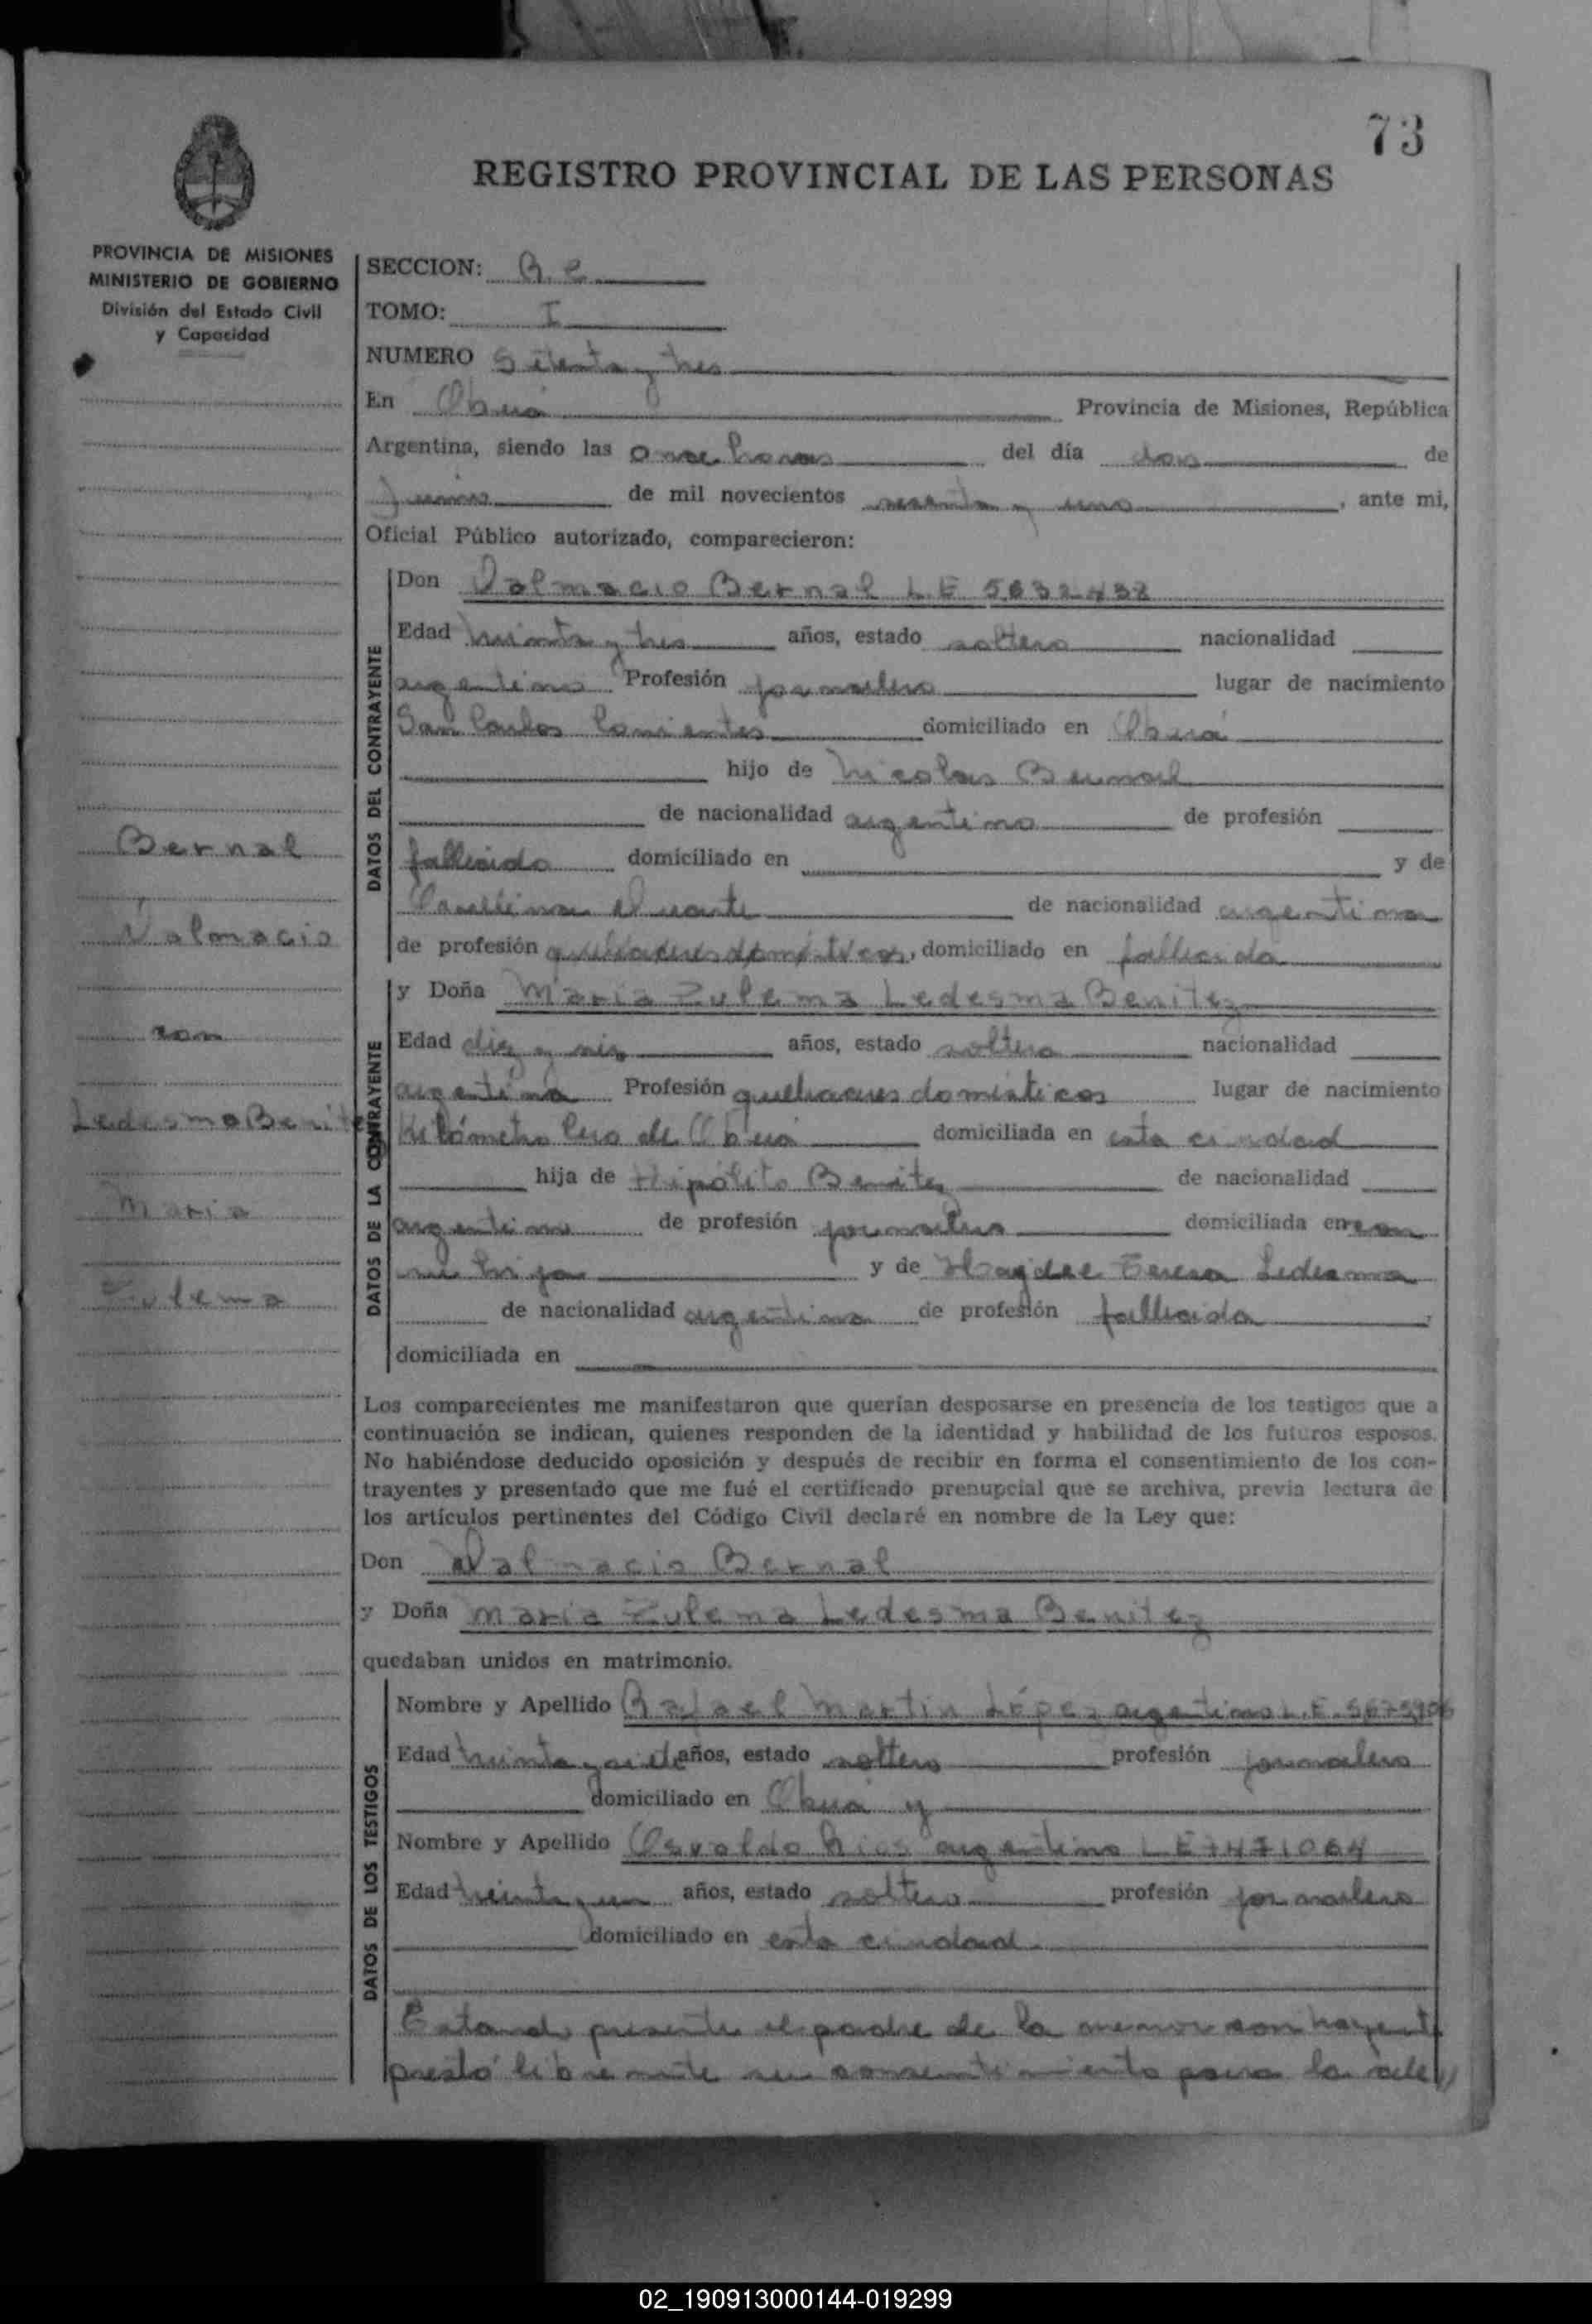 73
REGISTRO PROVINCIAL DE LAS PERSONAS
PROVINCIA DE MISIONES
MINISTERIO DE GOBIERNO
División del Estado Civil
y Capacidad
Bernal
y
Valmacio
con
Ledesma Benite
Maria
Zulema
SECCION:
TOMO: I
NUMERO Setenta y tres
En Oberá Provincia de Misiones, República
Argentina, siendo las once horas del día dos de
Junio de mil novecientos sesenta y uno, ante mi,
Oficial Público autorizado, comparecieron:
DATOS DEL CONTRAYENTE
Don Valmacio Bernal L E 5632432
Edad treinta y tres años, estado soltero nacionalidad
argentino Profesión jornalero lugar de nacimiento
San Carlos Corrientes domiciliado en Oberá
hijo de Nicolas Bernal
de nacionalidad argentino de profesión
fallecido domiciliado en y de
de nacionalidad argentina
de profesión quehaceres domésticos, domiciliado en fallecida
DATOS DE LA CONTRAYENTE
y Doña Maria Zulema Ledesma Benitez
Edad diez y seis años, estado soltera nacionalidad
argentina Profesión quehaceres domésticos lugar de nacimiento
Kilómetro de Oberá domiciliada en esta ciudad
hija de Hipólito Benitez de nacionalidad
argentino de profesión jornalero domiciliada en con
su hija y de Haydee Teresa Ledesma
de nacionalidad argentina de profesión fallecida,
domiciliada en
Los comparecientes me manifestaron que querían desposarse en presencia de los testigos que a
continuación se indican, quienes responden de la identidad y habilidad de los futuros esposos.
No habiéndose deducido oposición y después de recibir en forma el consentimiento de los con-
trayentes y presentado que me fué el certificado prenupcial que se archiva, previa lectura de
los artículos pertinentes del Código Civil declaré en nombre de la Ley que:
Don Valmacio Bernal
y Doña Maria Zulema Ledesma Benitez
quedaban unidos en matrimonio.
DATOS DE LOS TESTIGOS
Nombre y Apellido Rafael Martin López argentino L.E.
Edad treinta y siete años, estado soltero profesión jornalero
domiciliado en Oberá y
Nombre y Apellido Osvaldo Rios argentino L E 7471064
Edad treinta y un años, estado soltero profesión jornalero
domiciliado en esta ciudad.
Estando presente el padre de la menor contrayente
prestó libremente su consentimiento para la cele//
02_190913000144-019299